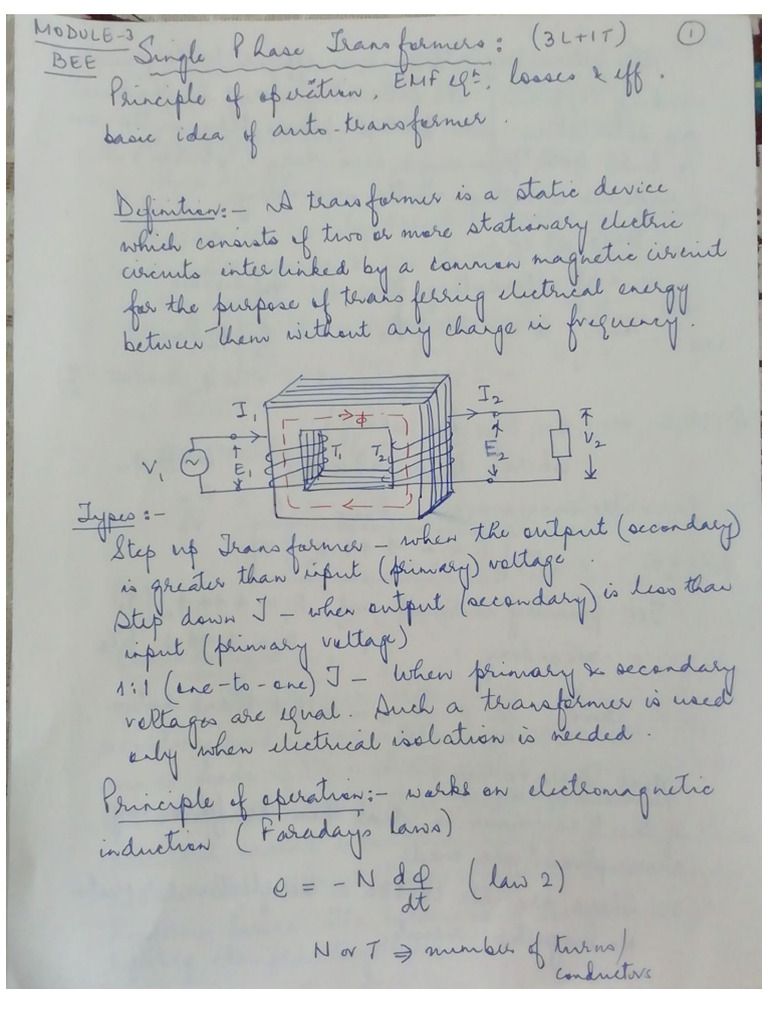 MODULE-3
BEE
Single Phase Transformers: (3L+1T) 1
Principle of operation, EMF eqn, losses & eff.
basic idea of auto-transformer.
Definition:- A transformer is a static device
which consists of two or more stationary electric
circuits inter linked by a common magnetic circuit
for the purpose of transferring electrical energy
between them without any change in frequency.
I1 I2
ϕ
V1 E1 T1 T2 E2 V2
Types:-
Step up Transformer - when the output (secondary)
is greater than input (primary) voltage.
Step down T - when output (secondary) is less than
input (primary voltage)
1:1 (one-to-one) T - When primary & secondary
voltages are equal. Such a transformer is used
only when electrical isolation is needed.
Principle of operation:- works on electromagnetic
induction (Faraday's laws)
e = - N dφ/dt (law 2)
N or T ⇒ number of turns/
conductors